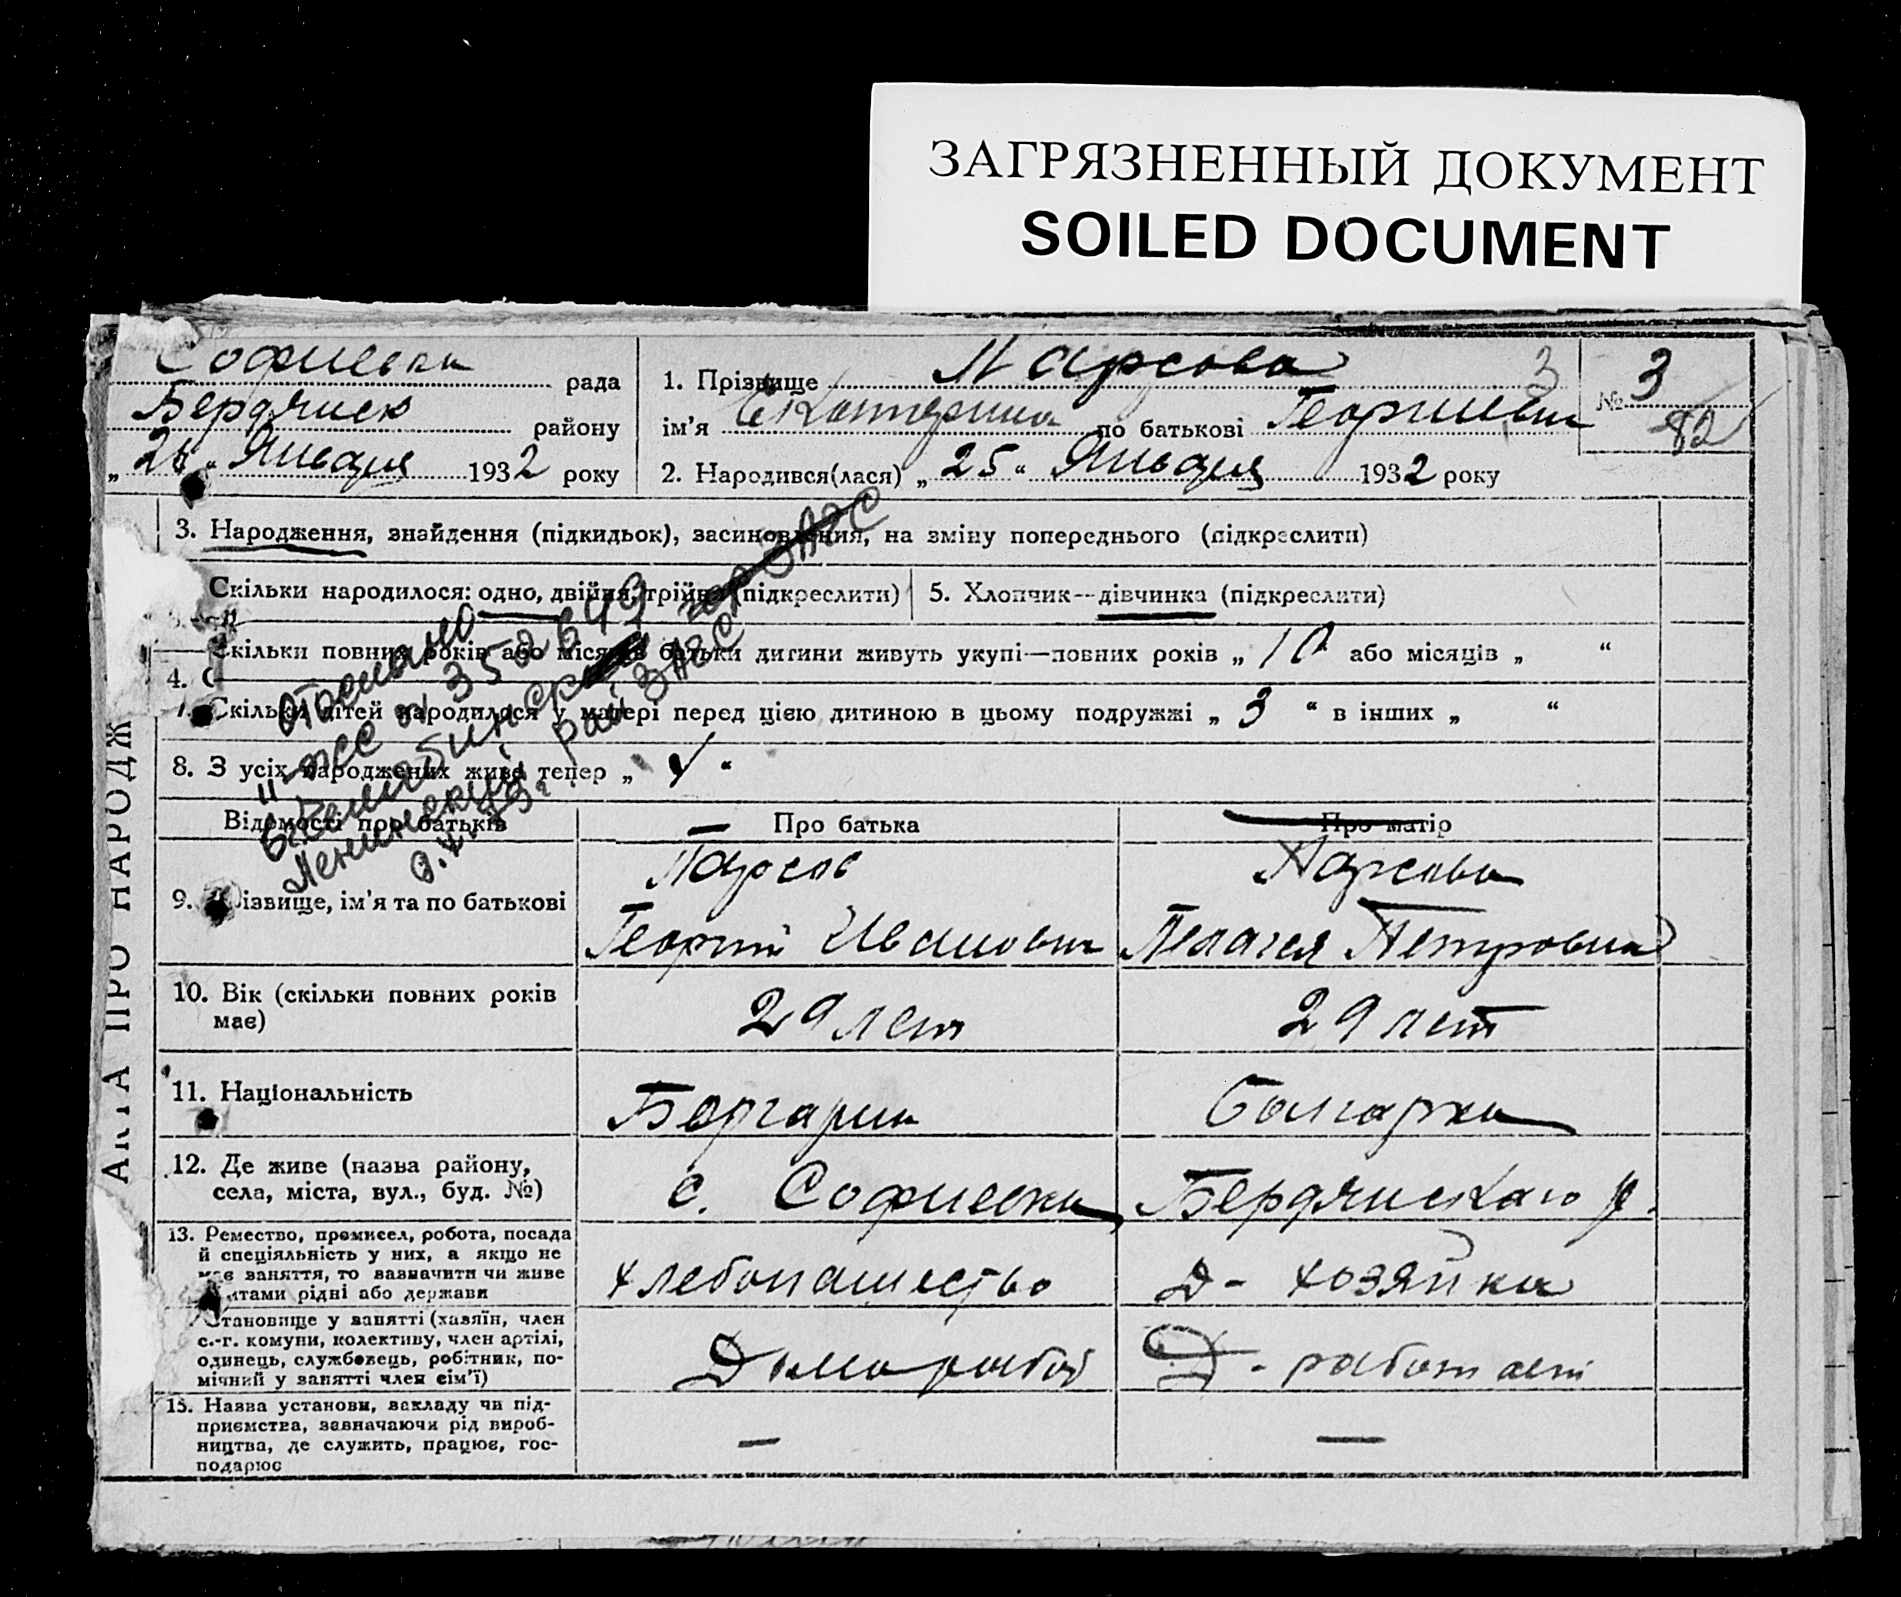 ЗАГРЯЗНЕННЫЙ ДОКУМЕНТ
SOILED DOCUMENT
Софиевка рада
Бердянск району
„ 26 “ Января 1932 року
1. Прізвище Парсова 3
ім’я Екатерина по батькові Георгиевн
2. Народився(лася) „ 25 “ Января 1932 року
№ 3
82
АКТА ПРО НАРОДЖ
3. Народження, знайдення (підкидьок), засиновлення, на зміну попереднього (підкреслити)
Скільки народилося: одно, двійня, трійня (підкреслити)
5. Хлопчик—дівчинка (підкреслити)
Скільки повних років або місяців батьки дитини живуть укупі—повних років „ 10 або місяців „ “
4. С
7. Скільки дітей народилося у матері перед цією дитиною в цьому подружжі „ 3 “ в інших „ “
8. З усіх народжених живе тепер „ “
35 649
Челябинск
Ленинский рай ЗАГС
Відомості про батьків
Про батька
Про матір
9. Прізвище, ім’я та по батькові
Парсов
Георгий Иванович
Парсова
Пелагея Петровна
10. Вік (скільки повних років
має)
29 лет
29 лет
11. Національність
Болгарин
Болгарка
12. Де живе (назва району,
села, міста, вул., буд. №)
с. Софиевка Бердянскаго р.
13. Ремество, промисел, робота, посада
й спеціяльність у них, а якщо не
має заняття, то зазначити чи живе
коштами рідні або держави
хлебопашество
д- хозяйка
становище у занятті (хазяїн, член
с.-г. комуни, колективу, член артілі,
одинець, службовець, робітник, по-
мічний у занятті член сім’ї)
Домаработ
Д - работает
15. Назва установи, закладу чи під-
приємства, зазначаючи рід вироб-
ництва, де служить, працює, гос-
подарює
—
—